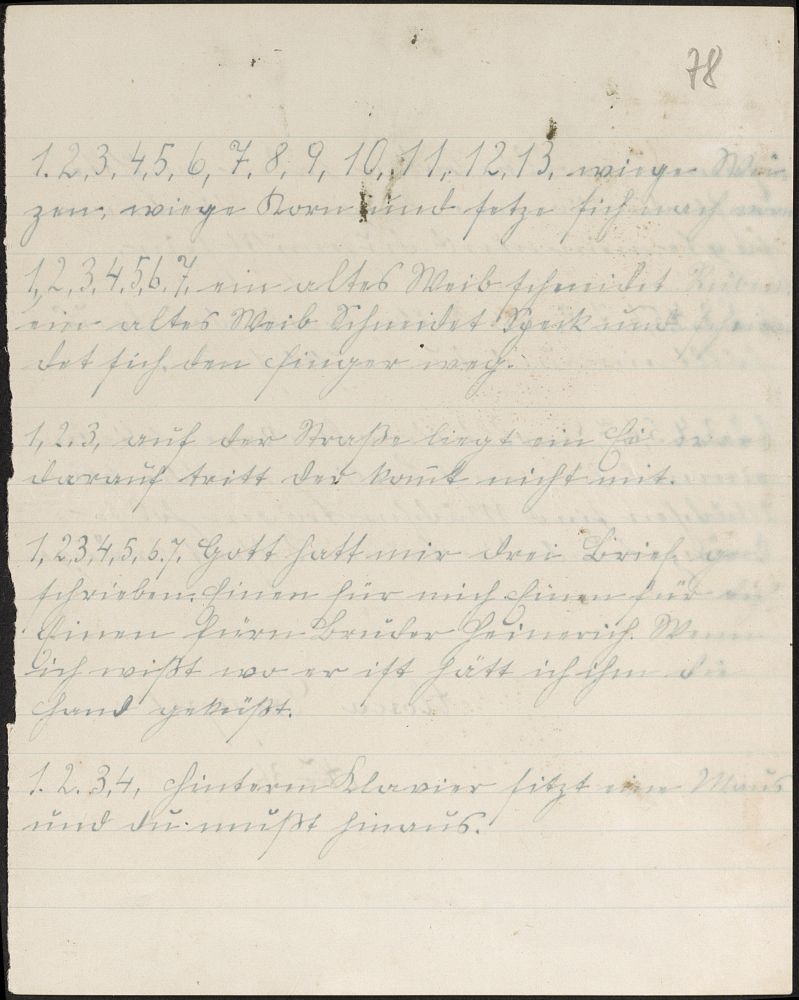 78
1. 2, 3, 4, 5, 6, 7, 8, 9, 10, 11, 12, 13, wiege Wei-
zen, wiege Korn und setze sich nach
1, 2, 3, 4, 5, 6, 7, ein altes Weib schneidet
ein altes Weib Schneidet Speck und schnei
det sich den Finger weg.
1, 2, 3, auf der Straße liegt ein Ei. wer
darauf tritt der kommt nicht mit.
1, 2, 3, 4, 5, 6, 7, Gott hatt mir drei Brief ge
schrieben. Einen für mich Einen für
Einen fürn Bruder Heinerich. Wenn
ich wißt wo er ist hätt ich ihm die
Hand geküßt.
1. 2. 3, 4, Hinterm Klavier sitzt eine Maus
und du mußt hinaus.